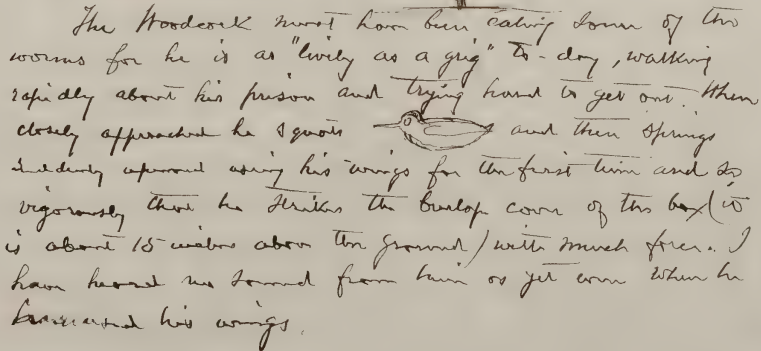 The Woodcock must have been eating some of the
worms for he is as "lively as a grig" to-day, walking
rapidly about his prison and trying hard to get out. When
closely approached he squats and then springs
suddenly upward using his wings for the first time and so
vigorously that he strikes the burlap cover of the box (it
is about 15 inches above the ground) with much force. I
have heard no sound from him as yet even when he
his wings.